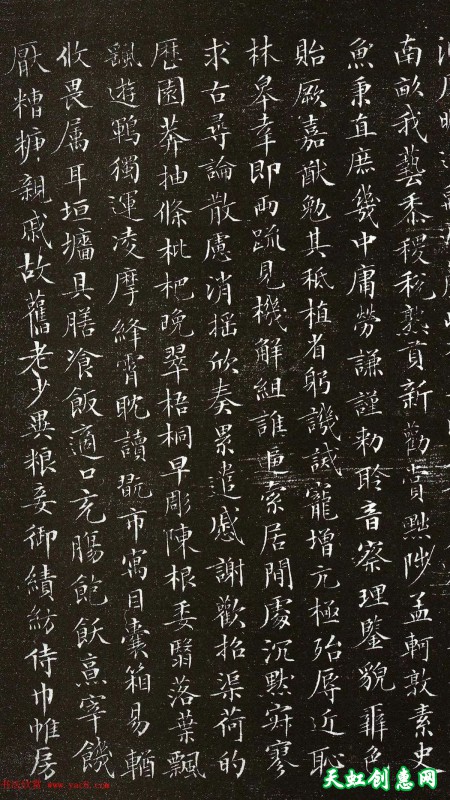 南畝我藝黍稷稅熟貢新勸賞黜陟孟軻敦素史
魚秉直庶幾中庸勞謙謹勑聆音察理鑒貌辯色
貽厥嘉猷勉其祗植省躬譏誡寵增亢極殆辱近恥
林皋幸即兩疏見機解組誰逼索居閒處沉默寂寥
求古尋論散慮消搖欣奏累遣慼謝歡招渠荷的
歷園莽抽條枇杷晚翠梧桐早彫陳根委翳落葉飄
颻遊鵾獨運凌摩絳霄耽讀翫市寓目囊箱易輶
攸畏属耳垣墻具膳飡飯適口充腸飽飫烹宰饑
厭糟糠親戚故舊老少異粮妾御績紡侍巾帷房
天虹创惠网